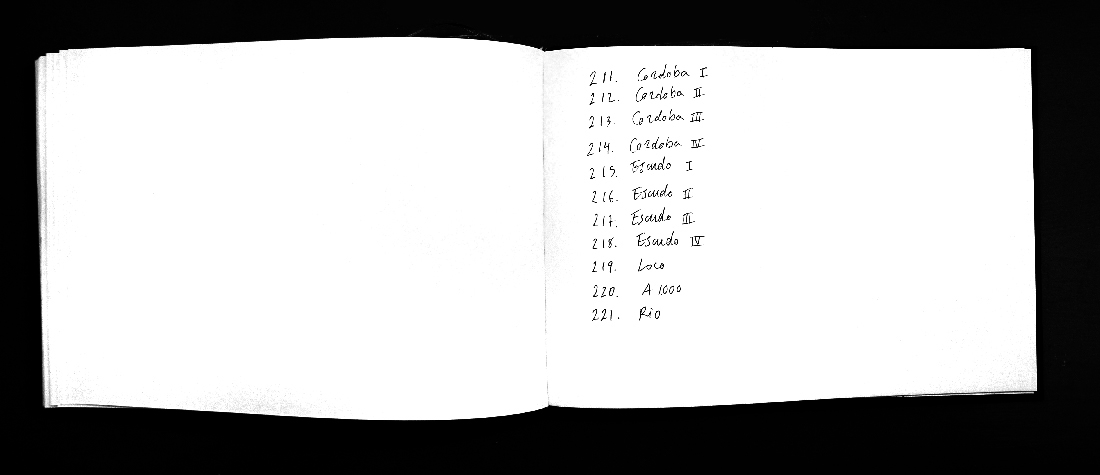 211. Cordoba I
212. Cordoba II
213. Cordoba III
214. Cordoba IV
215. Escudo I
216. Escudo II
217. Escudo III
218. Escudo IV
219. Loco
220. A 1000
221. Rio